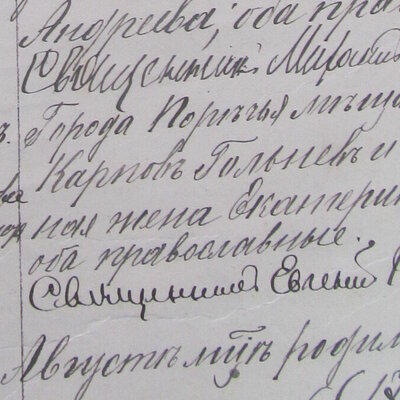 Андреева; оба пра
Священникъ
ъ. Города Порѣчья мѣща
Карповъ Гольневъ и
ная жена Екатери
оба православные.
Священникъ Евгеній
Августъ мцъ родил